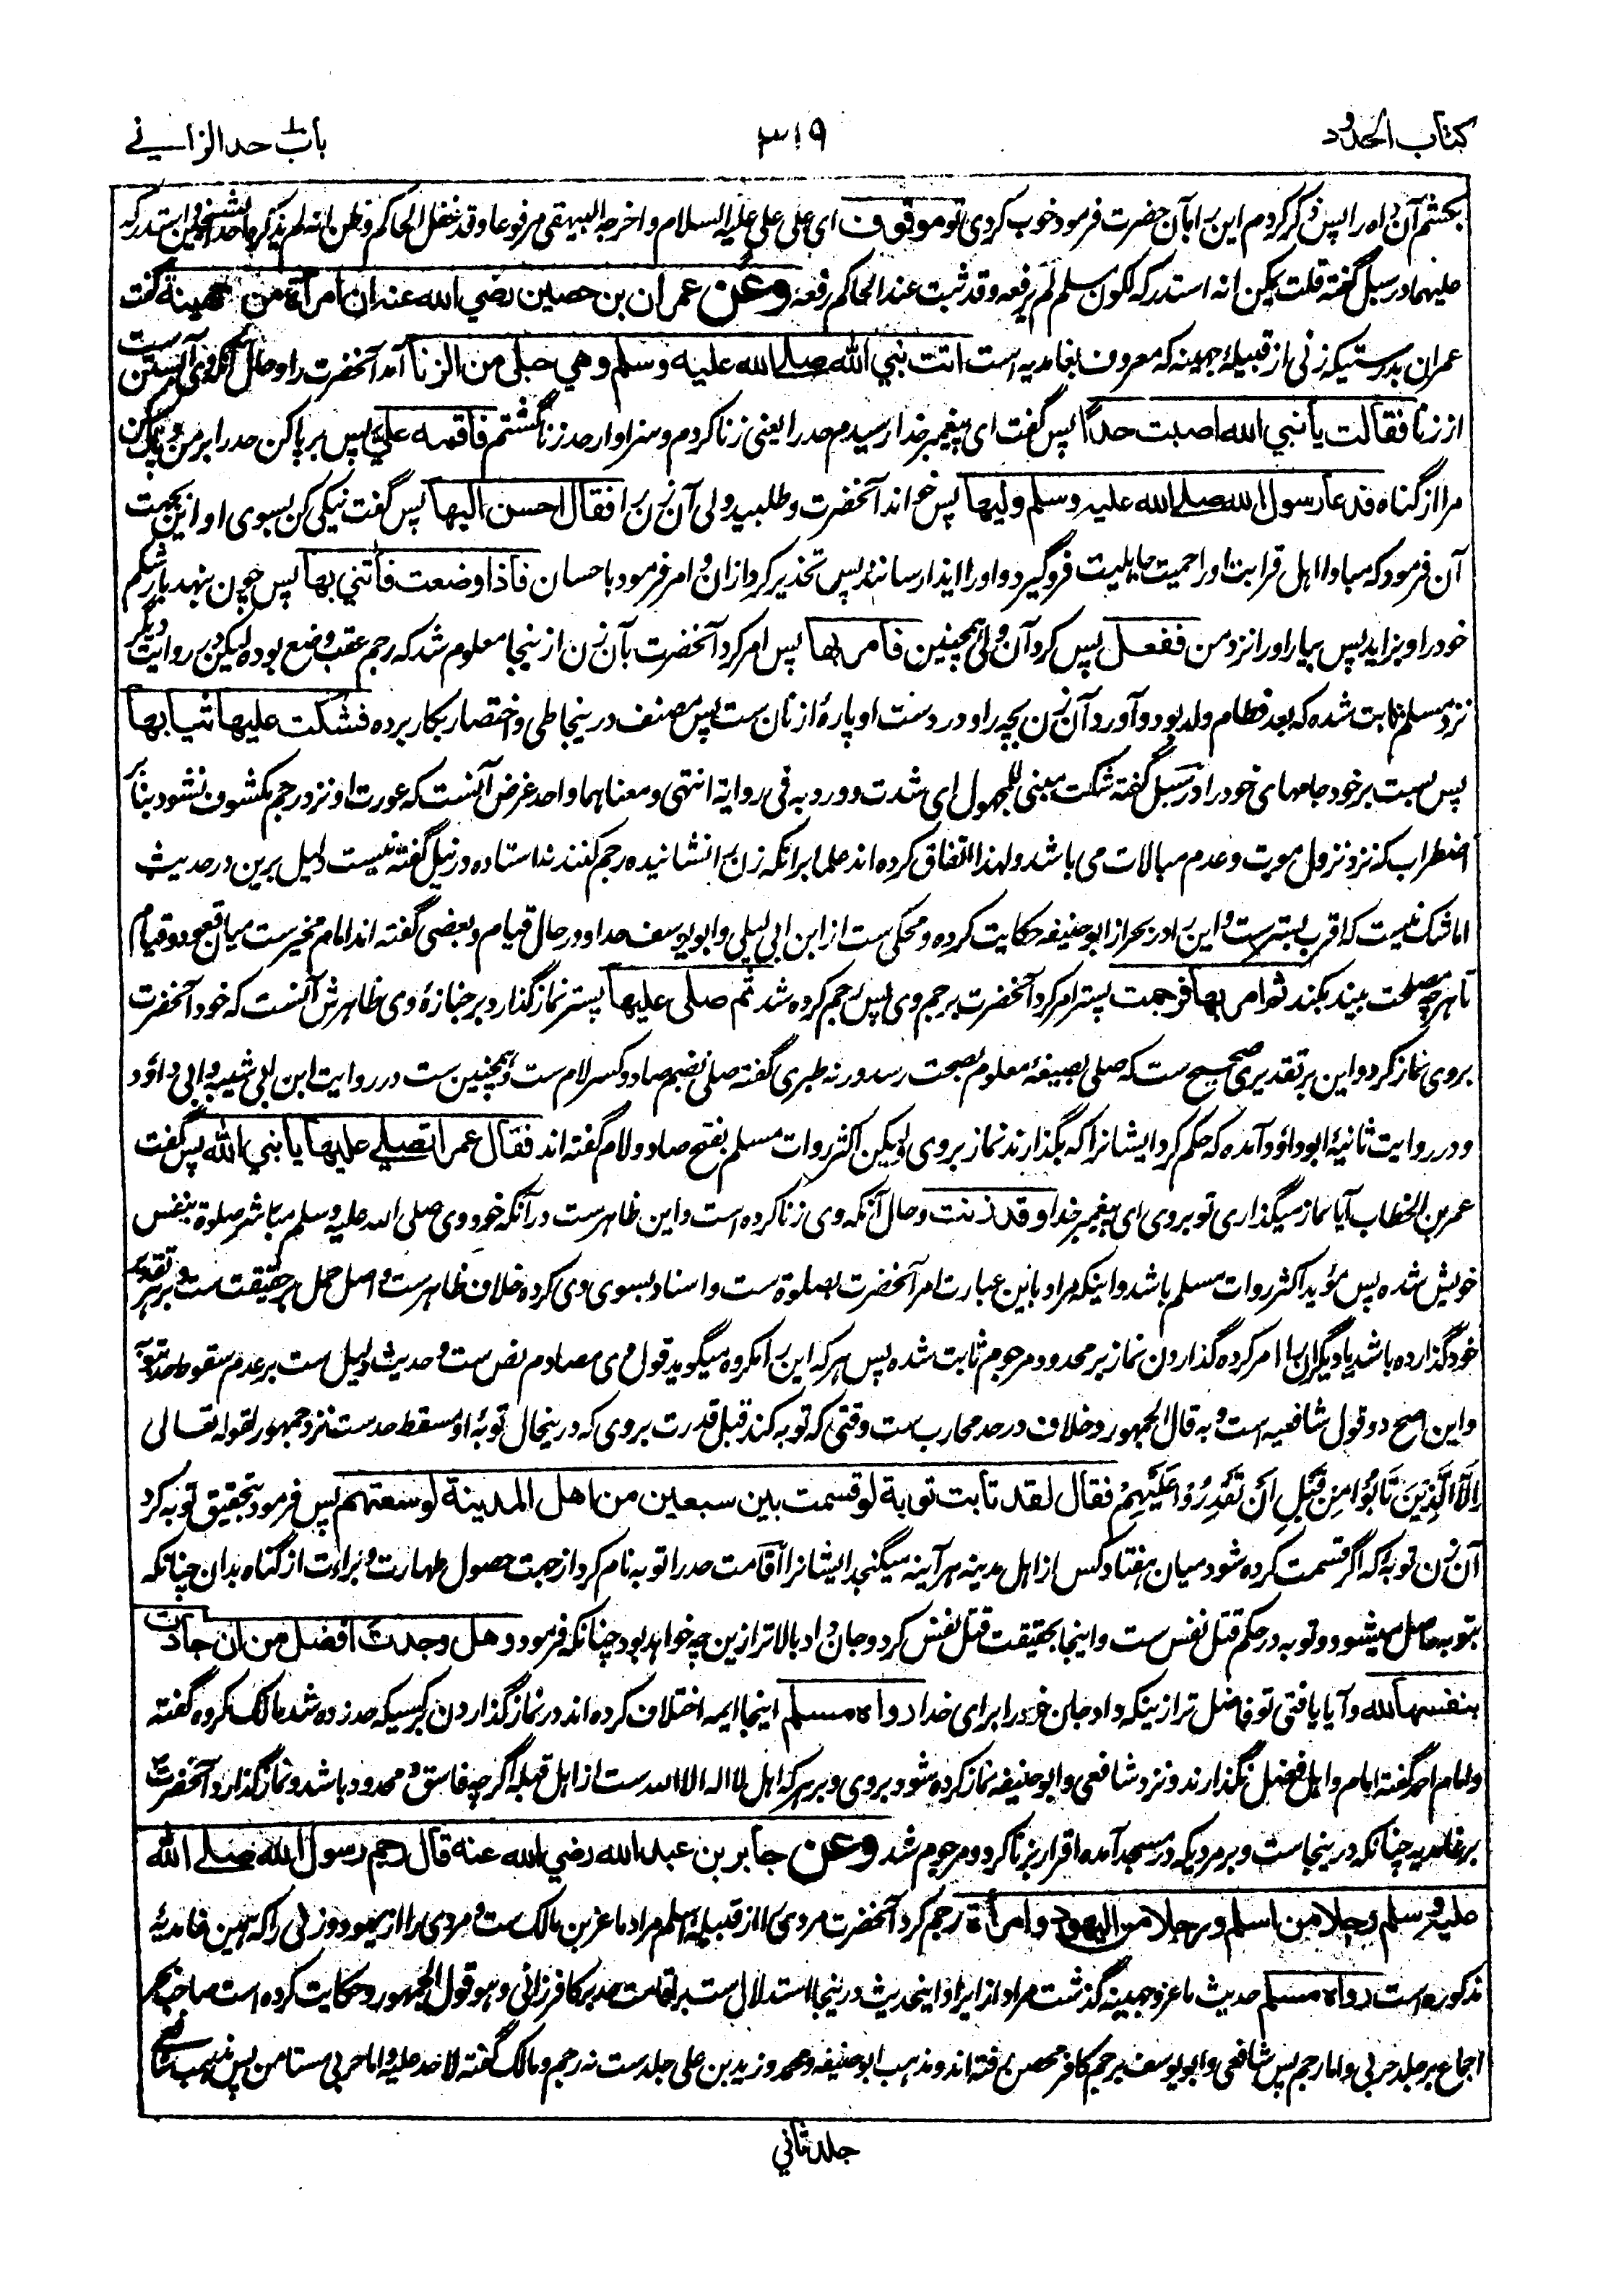 کتاب الحدود
۳۱۹
باب حد الزانے
بکشتم آن را پس ذکر کردم این را بآن حضرت فرمود خوب کردی تو موقوف ای علی علی علیه السلام و اخرجه البیهقی مرفوعا وقد غفل الحاکم وظن انه لم یذکره استدرکه
علیهما در سبل گفته قلت یمکن انه استدرکه لکون مسلم لم یرفعه وقد ثبت عند الحاکم رفعه وعن عمران بن حصین رضي الله عنه ان امرأة من جهينة گفت
عمران بدرستیکه زنی از قبیلۀ جهینه که معروف بغامدیه است اتت نبي الله صلے الله عليه وسلم وهي حبلى من الزنا آمد آنحضرت را و حال آنکه وی آبستن ست
از زنا فقالت يا نبي الله اصبت حدا پس گفت ای پیغمبر خدا رسیدم حد را یعنی زنا کردم و سزاوار حد زنا گشتم فاقمه علي پس برپا کن حد را بر من و پاک کن
مرا از گناه فدعا رسول الله صلے الله عليه وسلم وليها پس خواند آنحضرت و طلبید ولی آن زن را فقال احسن اليها پس گفت نیکی کن بسوی او و این بجهت
آن فرمود که مبادا اهل قرابت او را حمیت جاهلیت فروگیرد و او را ایذا رسانند پس تحذیر کرد ازان و امر فرمود باحسان فاذا وضعت فأتني بها پس چون بنهد بار شکم
خود را و بزاید پس بیار او را نزد من ففعل پس کرد آن ولی همچنین فامر بها پس امر کرد آنحضرت بآن زن ازینجا معلوم شد که رجم عقب وضع بوده لیکن در روایت دیگر
نزد مسلم ثابت شده که بعد فطام ولد بود و آورد آن زن بچه را و در دست او پارۀ از نان ست پس مصنف درینجا طی و اختصار بکار برده فشكت عليها ثيابها
پس بست بر خود جامهای خود را در سبل گفته شکت مبنی للمجهول ای شدت و ورد به فی روایة انتهی و معناهما واحد غرض آنست که عورت او نزد رجم مکشوف نشود بنا بر
اضطراب که نزد نزول موت و عدم مبالات می باشد و لهذا اتفاق کرده اند علما بر آنکه زن را نشانیده رجم کنند نه استاده در نیل گفته نیست دلیل برین در حدیث
اما شک نیست که اقرب بستر ست و این را در بحر از ابو حنیفه حکایت کرده و محکی ست از ابن ابی لیلی و ابو یوسف حد او در حال قیام و بعضی گفته اند امام مخیر ست میان قعود و قیام
تا هرچه مصلحت بیند بکند ثم امر بها فرجمت پستر امر کرد آنحضرت برجم وی پس رجم کرده شد ثم صلى عليها پستر نماز گذارد بر جنازۀ وی ظاهرش آنست که خود آنحضرت
بر وی نماز کرد و این بر تقدیری صحیح ست که صلی بصیغۀ معلوم بصحت رسد ورنه طبری گفته صلی بضم صاد و کسر لام ست و همچنین ست در روایت ابن ابی شیبه و ابی داؤد
و در روایت ثانیۀ ابو داؤد آمده که حکم کرد ایشانرا که بگذارند نماز بر وی لیکن اکثر روات مسلم بفتح صاد و لام گفته اند فقال عمر اتصلي عليها يا نبي الله پس گفت
عمر بن الخطاب آیا نماز میگذاری تو بر وی ای پیغمبر خدا وقد زنت و حال آنکه وی زنا کرده است و این ظاهر ست در آنکه خود وی صلی الله علیه وسلم مباشر صلوة بنفس
خویش شده پس مؤید اکثر روات مسلم باشد و اینکه مراد باین عبارت امر آنحضرت بصلوة ست و اسناد بسوی وی کرده خلاف ظاهر ست و اصل حمل بر حقیقت ست و بر هر تقدیر
خود گذارده باشد یا دیگران را امر کرده گذاردن نماز بر محدود مرجوم ثابت شده پس هر که این را مکروه میگوید قول وی مصادم نص ست و حدیث دلیل ست بر عدم سقوط حد بتوبه
و این اصح دو قول شافعیه است و به قال الجمهور و خلاف در حد محارب ست وقتی که توبه کند قبل قدرت بر وی که درینحال توبۀ او مسقط حد ست نزد جمهور لقوله تعالی
اِلَّا الَّذِيْنَ تَابُوْا مِنْ قَبْلِ اَنْ تَقْدِرُوْا عَلَيْهِمْ فقال لقد تابت توبة لو قسمت بين سبعين من اهل المدينة لوسعتهم پس فرمود بتحقیق توبه کرد
آن زن توبۀ که اگر قسمت کرده شود میان هفتاد کس از اهل مدینه هر آینه میگنجد ایشانرا اقامت حد را توبه نام کرد از جهت حصول طهارت و براءت از گناه بدان چنانکه
بتوبه حاصل میشود و توبه در حکم قتل نفس ست و اینجا بحقیقت قتل نفس کرد و جان داد بالاتر ازین چه خواهد بود چنانکه فرمود وهل وجدت افضل من ان جادت
بنفسها لله و آیا یافتی تو فاضل تر ازینکه داد جان خود را برای خدا رواه مسلم اینجا ایمه اختلاف کرده اند در نماز گذاردن بر کسیکه حد زده شد مالک مکروه گفته
و امام احمد گفته امام و اهل فضل نگذارند و نزد شافعی و ابو حنیفه نماز کرده شود بر وی و بر هر که اهل لا اله الا الله ست از اهل قبله اگرچه فاسق و محدود باشد و نماز گذارد آنحضرت
بر غامدیه چنانکه درینجاست و بر مردیکه در مسجد آمده اقرار بزنا کرد و مرجوم شد وعن جابر بن عبد الله رضي الله عنه قال رجم رسول الله صلے الله
عليه وسلم رجلا من اسلم ورجلا من اليهود وامرأة رجم کرد آنحضرت مردی را از قبیلۀ اسلم مراد ماعز بن مالک ست و مردی را از یهود و زنی را که همین غامدیۀ
مذکوره است رواه مسلم حدیث ماعز و جهینه گذشت مراد از ایراد اینحدیث درینجا استدلال ست بر اقامت حد بر کافر زانی و هو قول الجمهور و حکایت کرده است صاحب بحر
اجماع بر جلد حربی و اما رجم پس شافعی و ابو یوسف برجم کافر محصن رفته اند و مذهب ابو حنیفه و محمد و زید بن علی جلد ست نه رجم و مالک گفته لا حد علیه و اما حربی مستامن پس مذهب شافعی
جلد ثاني